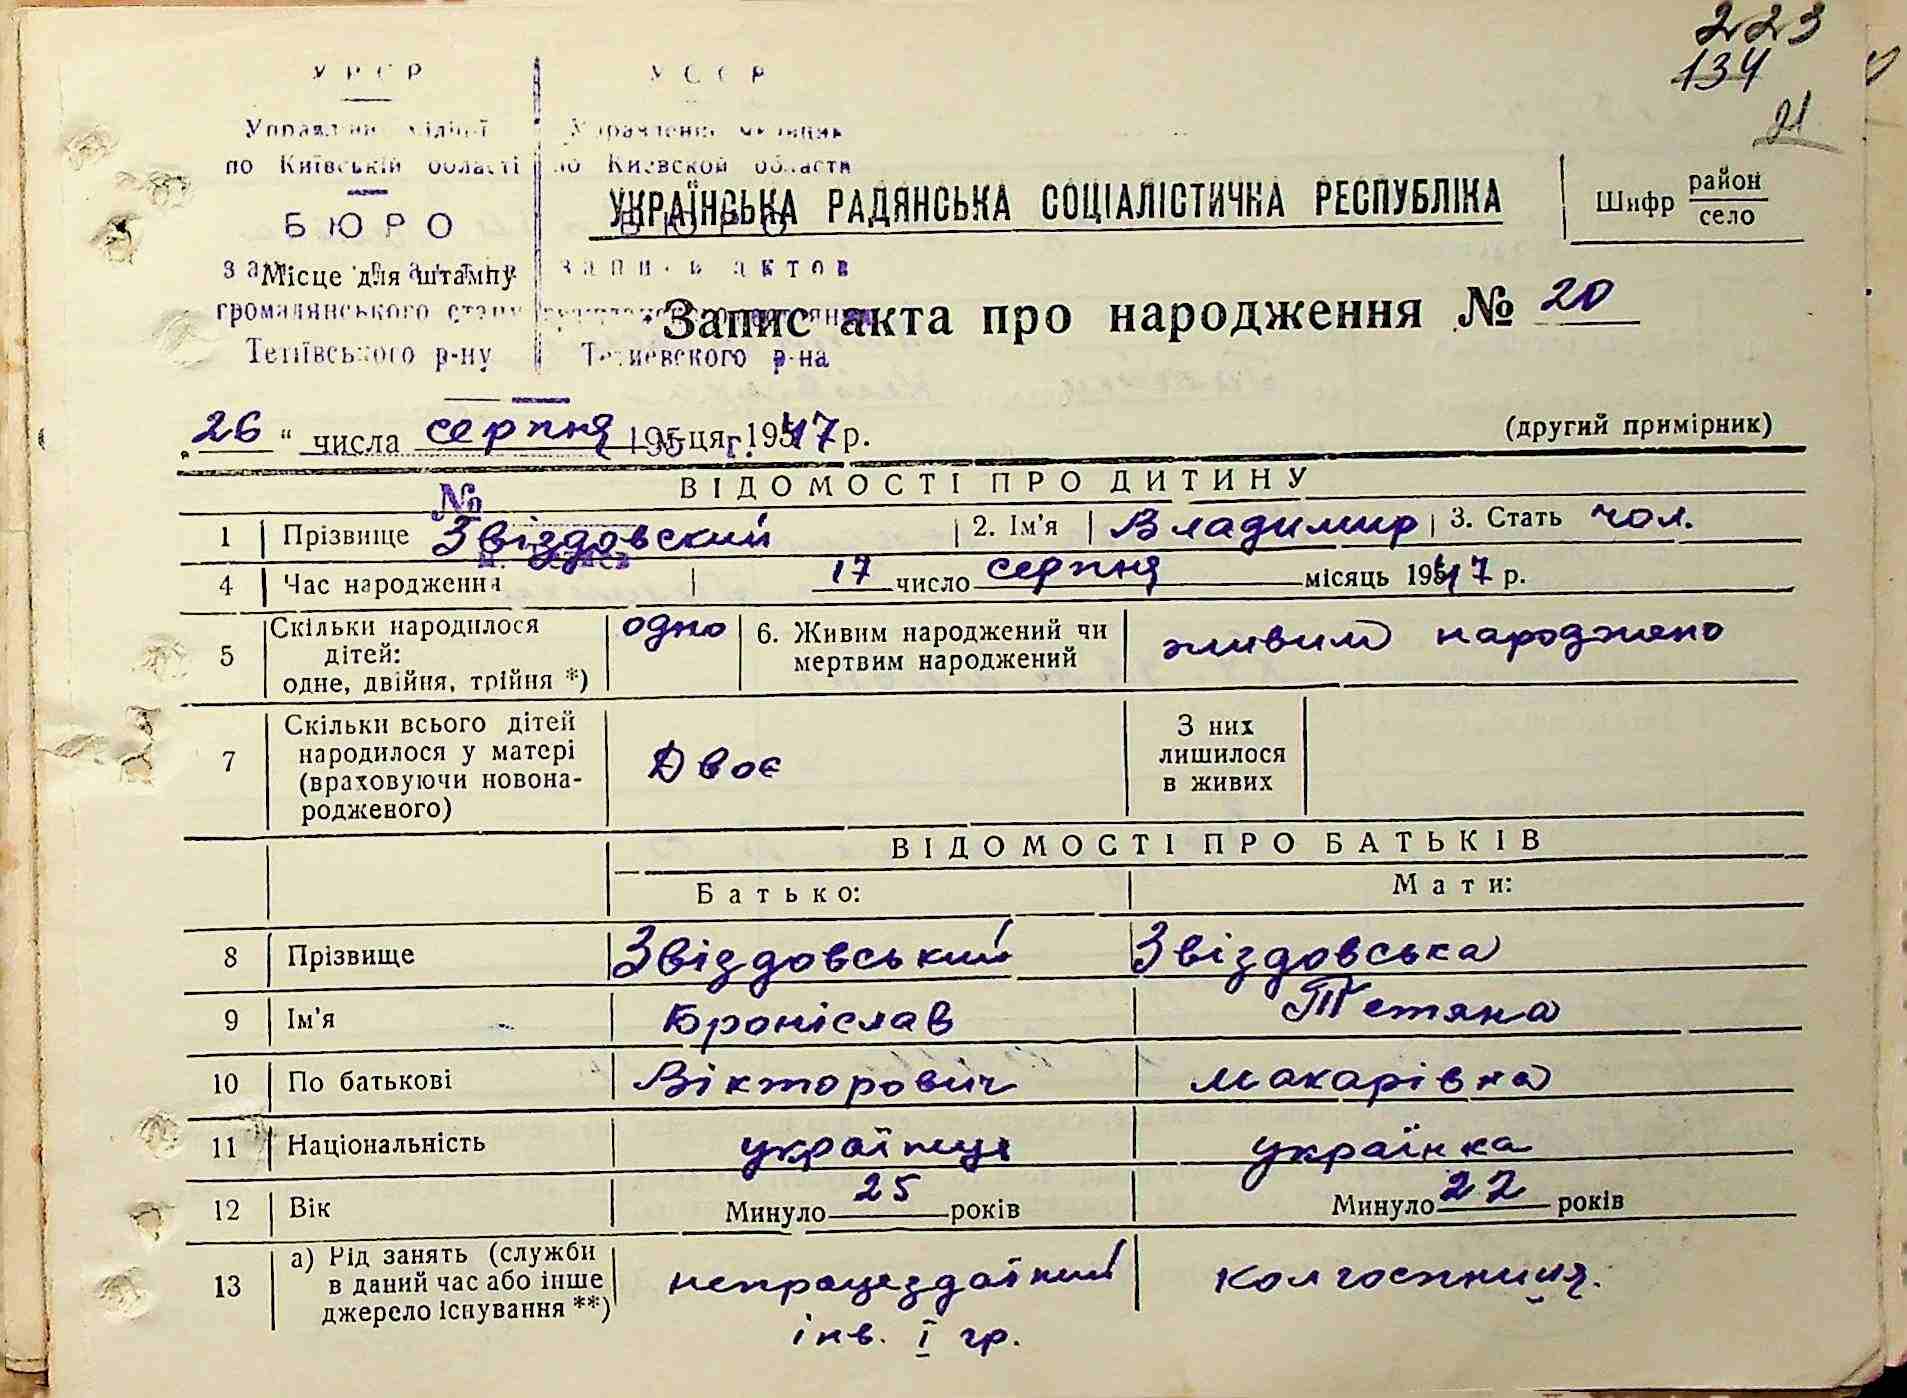 223
134
21
УРСР
УССР
по Київській області
по Киевской области
БЮРО
УКРАЇНСЬКА РАДЯНСЬКА СОЦІАЛІСТИЧНА РЕСПУБЛІКА
Шифр район село
Місце для штампу
запись актов
громадянського стану
Запис акта про народження № 20
Тетіївського р-ну
Тетиевского р-на
„26“ числа серпня місяця 1947 р.
(другий примірник)
№
ВІДОМОСТІ ПРО ДИТИНУ
1 Прізвище Звіздовский 2. Ім'я Владимир 3. Стать чол.
4 Час народження 17 число серпня місяць 1947 р.
5 Скільки народилося дітей: одне, двійня, трійня *) одно 6. Живим народжений чи мертвим народжений живим народжено
7 Скільки всього дітей народилося у матері (враховуючи новонародженого) Двоє З них лишилося в живих
ВІДОМОСТІ ПРО БАТЬКІВ
Батько: Мати:
8 Прізвище Звіздовський Звіздовська
9 Ім'я Броніслав Тетяна
10 По батькові Вікторович Макарівна
11 Національність українць українка
12 Вік Минуло 25 років Минуло 22 років
13 а) Рід занять (служби в даний час або інше джерело існування **) непрацездатний колгоспниця.
інв. І гр.